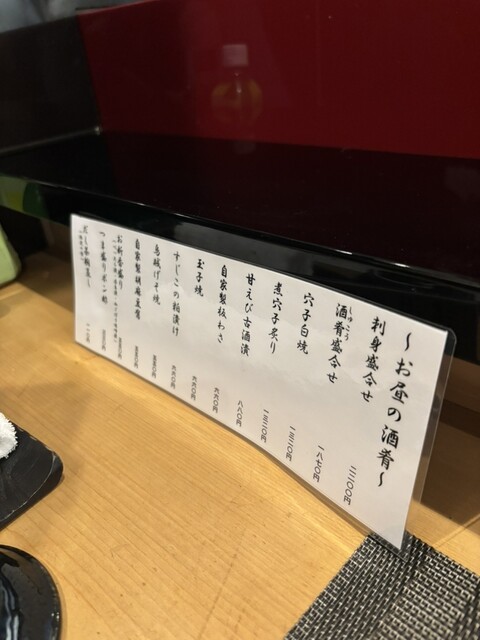 ～お昼の酒肴～
刺身盛合せ 二二〇〇円
酒肴盛合せ 一八七〇円
しゅこう
穴子白焼 一三二〇円
煮穴子炙り 一三二〇円
甘えび古酒漬 八八〇円
自家製板わさ 六六〇円
玉子焼 六六〇円
すじこの粕漬け 六六〇円
鳥賊げそ焼 五五〇円
自家製胡麻豆腐 五五〇円
お新香盛り
つま盛りポン酢
だし茶碗蒸し